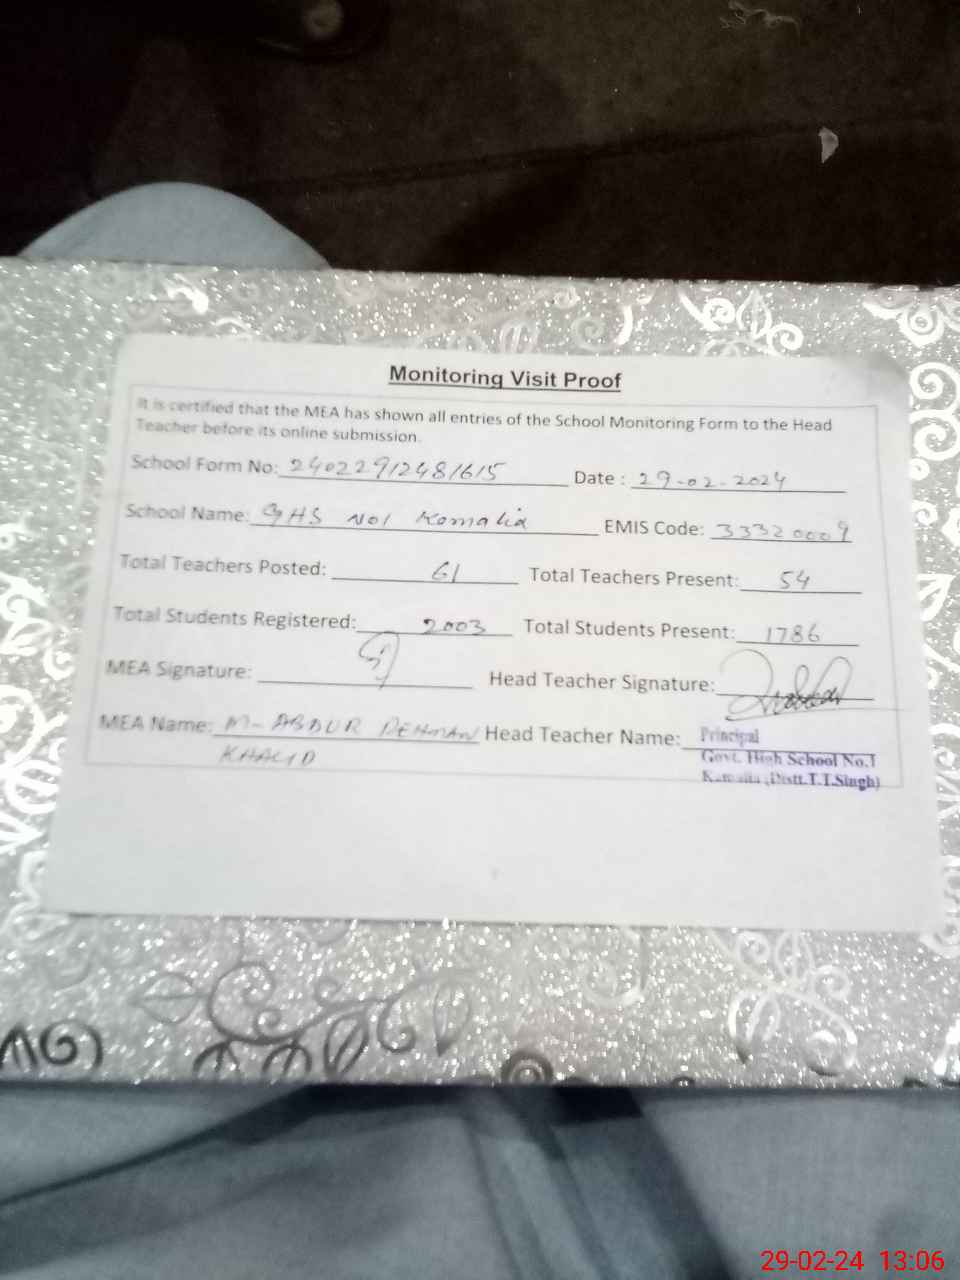 Monitoring Visit Proof
It is certified that the MEA has shown all entries of the School Monitoring Form to the Head
Teacher before its online submission.
School Form No: 24022912481615 Date : 29-02-2024
School Name: GHS No1 Kamalia EMIS Code: 33320009
Total Teachers Posted: 61 Total Teachers Present: 54
Total Students Registered: 2003 Total Students Present: 1786
MEA Signature: Head Teacher Signature:
MEA Name: M-ABDUR REHMAN Head Teacher Name: Principal
KHALID Govt. High School No.1
Kamalia (Distt.T.T.Singh)
29-02-24 13:06